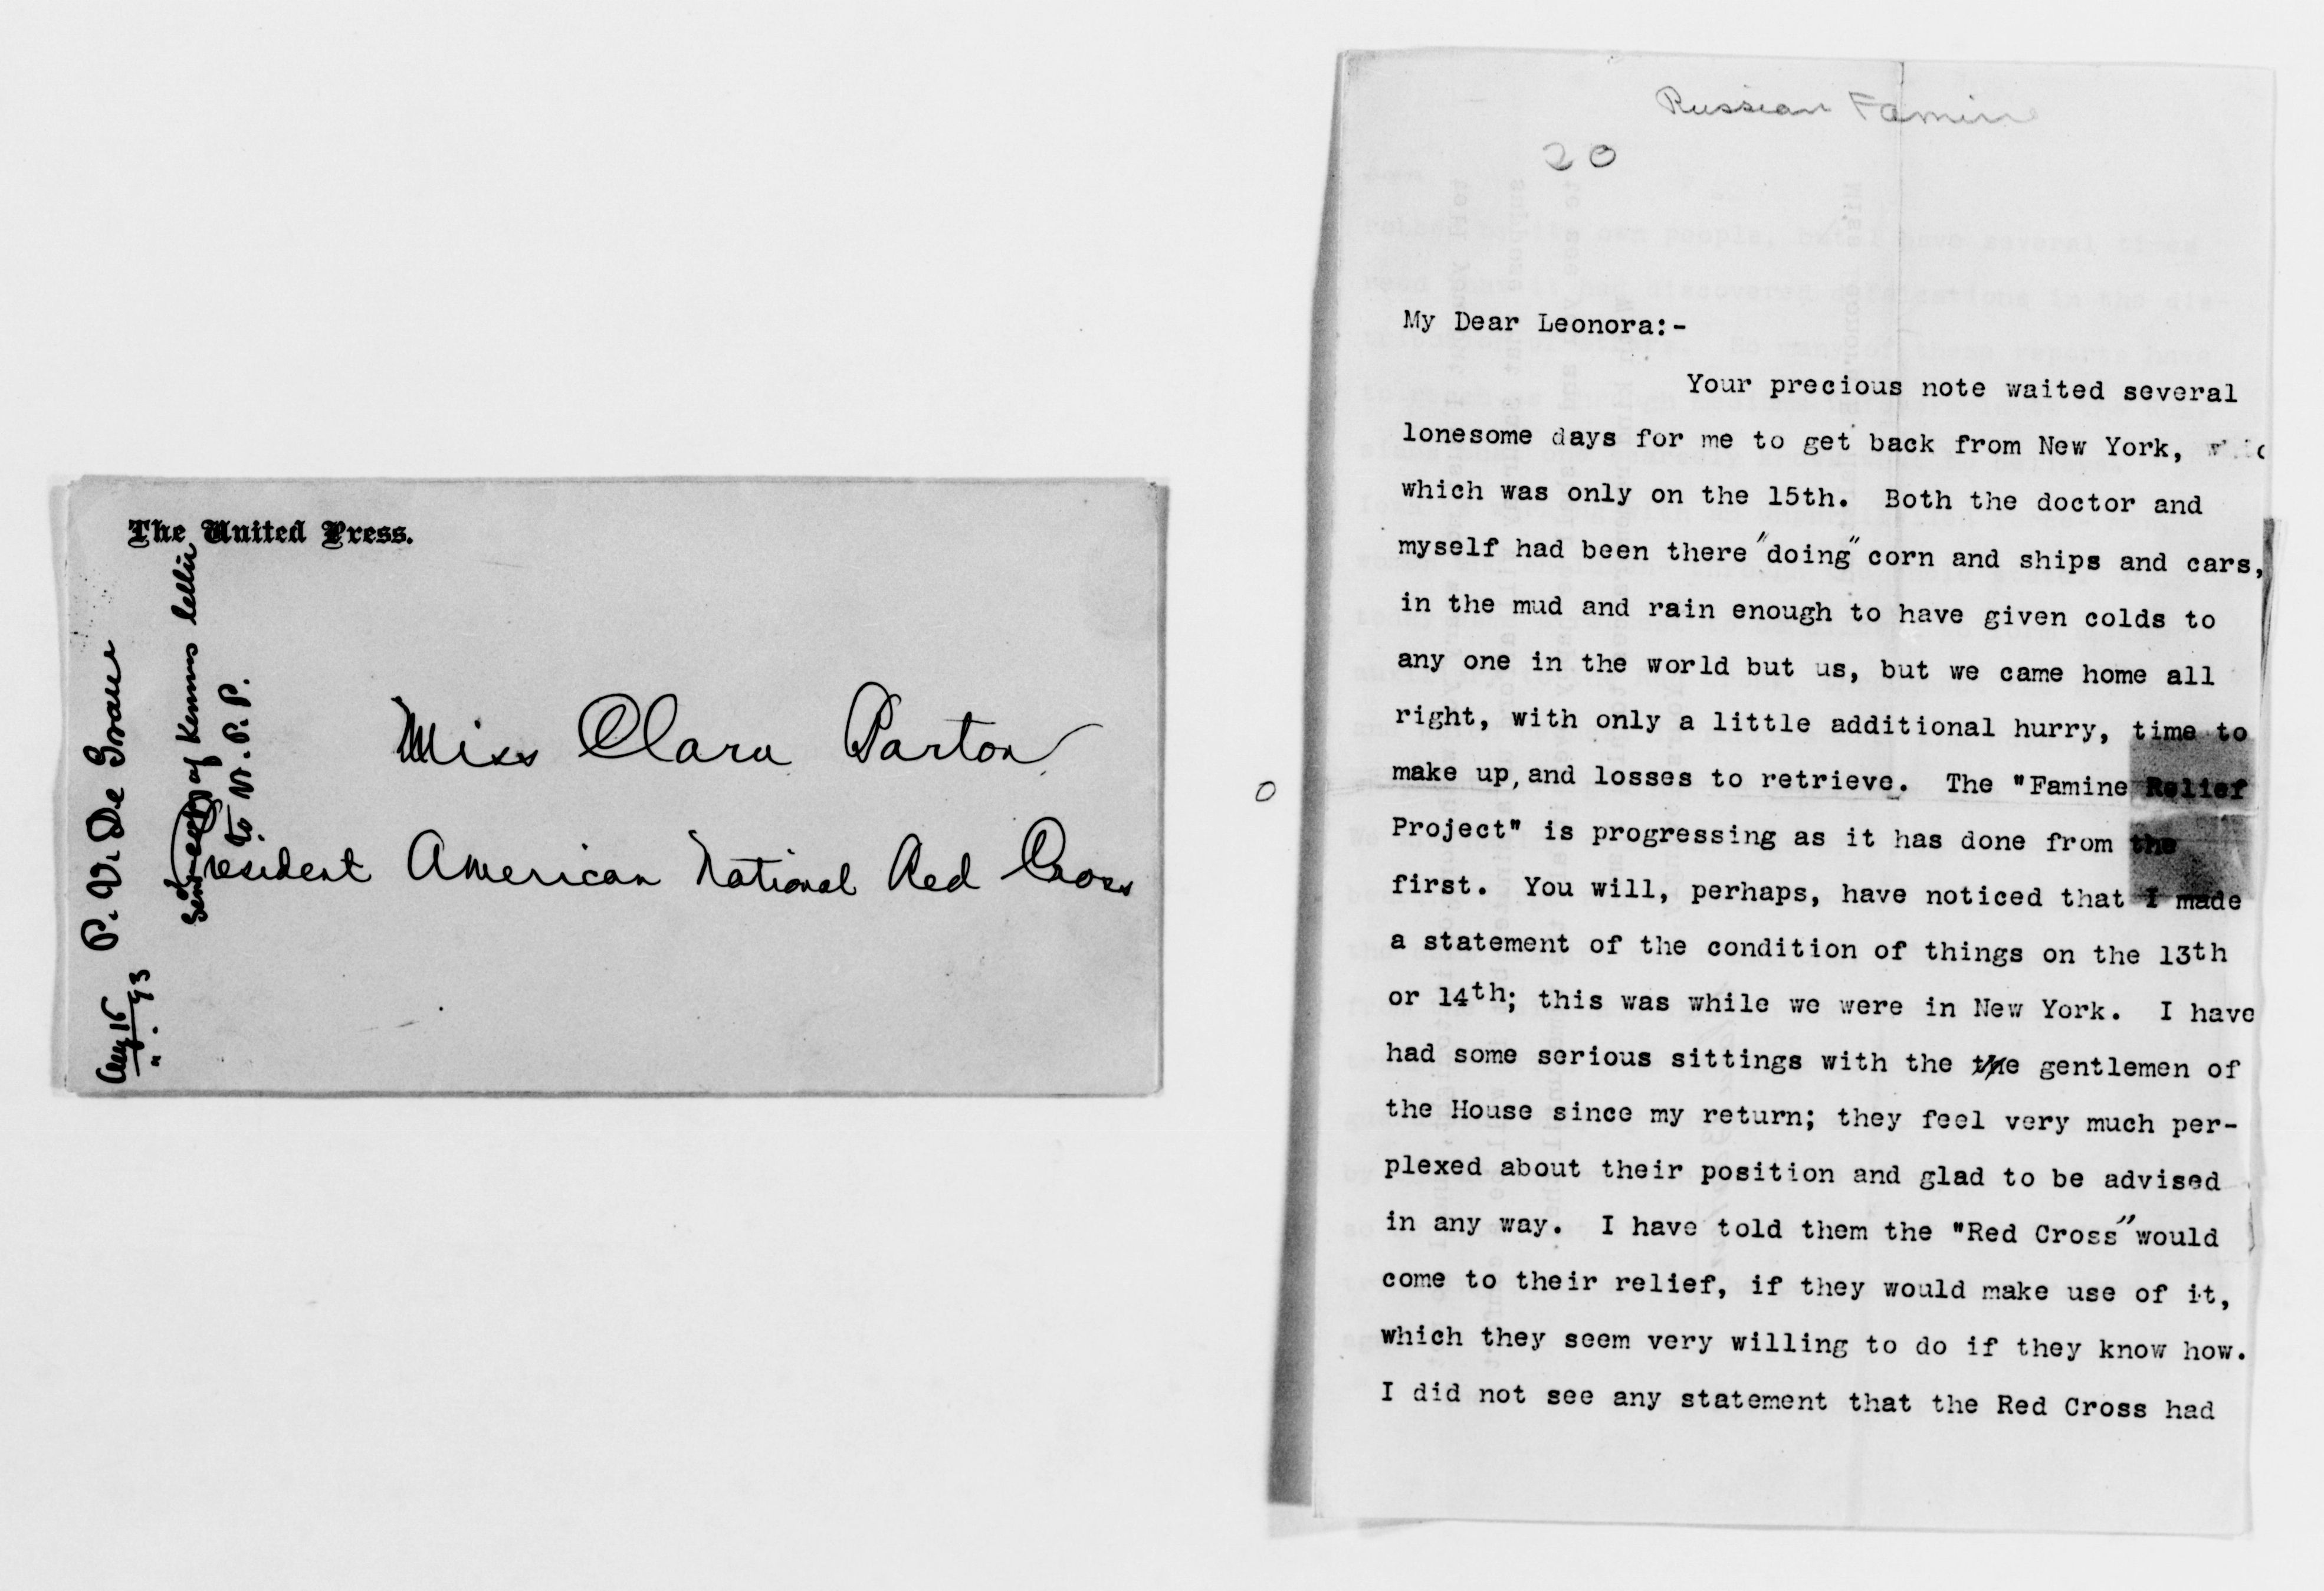 The United Press.
Miss Clara Barton
President American National Red Cross
P. V. De Graw
Aug 15
" . 93
Sends copy of Kennans letter
to W. P. P.
Russian Famine
20
My Dear Leonora:-
Your precious note waited several
lonesome days for me to get back from New York,
which was only on the 15th. Both the doctor and
myself had been there "doing" corn and ships and cars,
in the mud and rain enough to have given colds to
any one in the world but us, but we came home all
right, with only a little additional hurry, time to
make up, and losses to retrieve. The "Famine Relief
Project" is progressing as it has done from the
first. You will, perhaps, have noticed that I made
a statement of the condition of things on the 13th
or 14th; this was while we were in New York. I have
had some serious sittings with the the gentlemen of
the House since my return; they feel very much per-
plexed about their position and glad to be advised
in any way. I have told them the "Red Cross" would
come to their relief, if they would make use of it,
which they seem very willing to do if they know how.
I did not see any statement that the Red Cross had